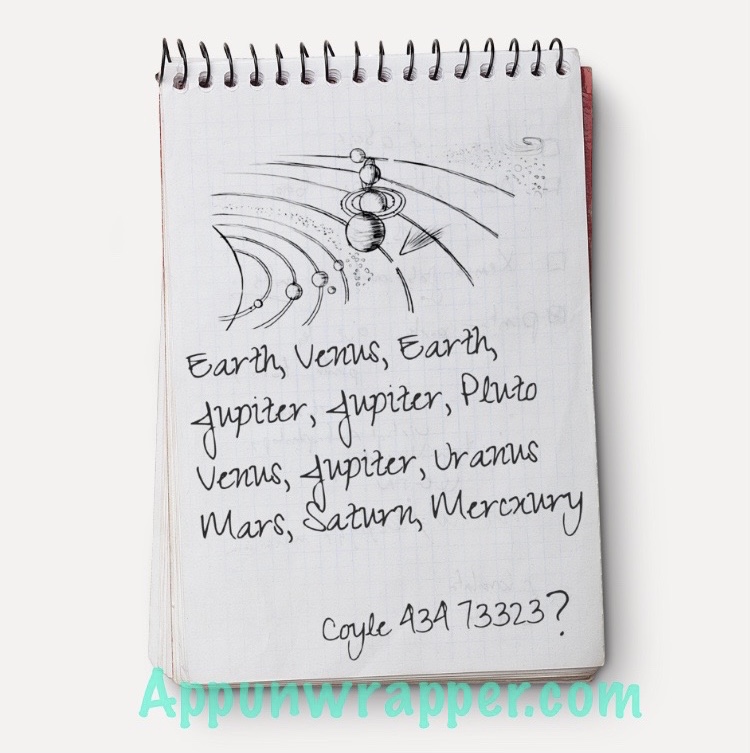 Earth, Venus, Earth,
Jupiter, Jupiter, Pluto
Venus, Jupiter, Uranus
Mars, Saturn, Mercxury
Coyle 434 73323?
Appunwrapper.com